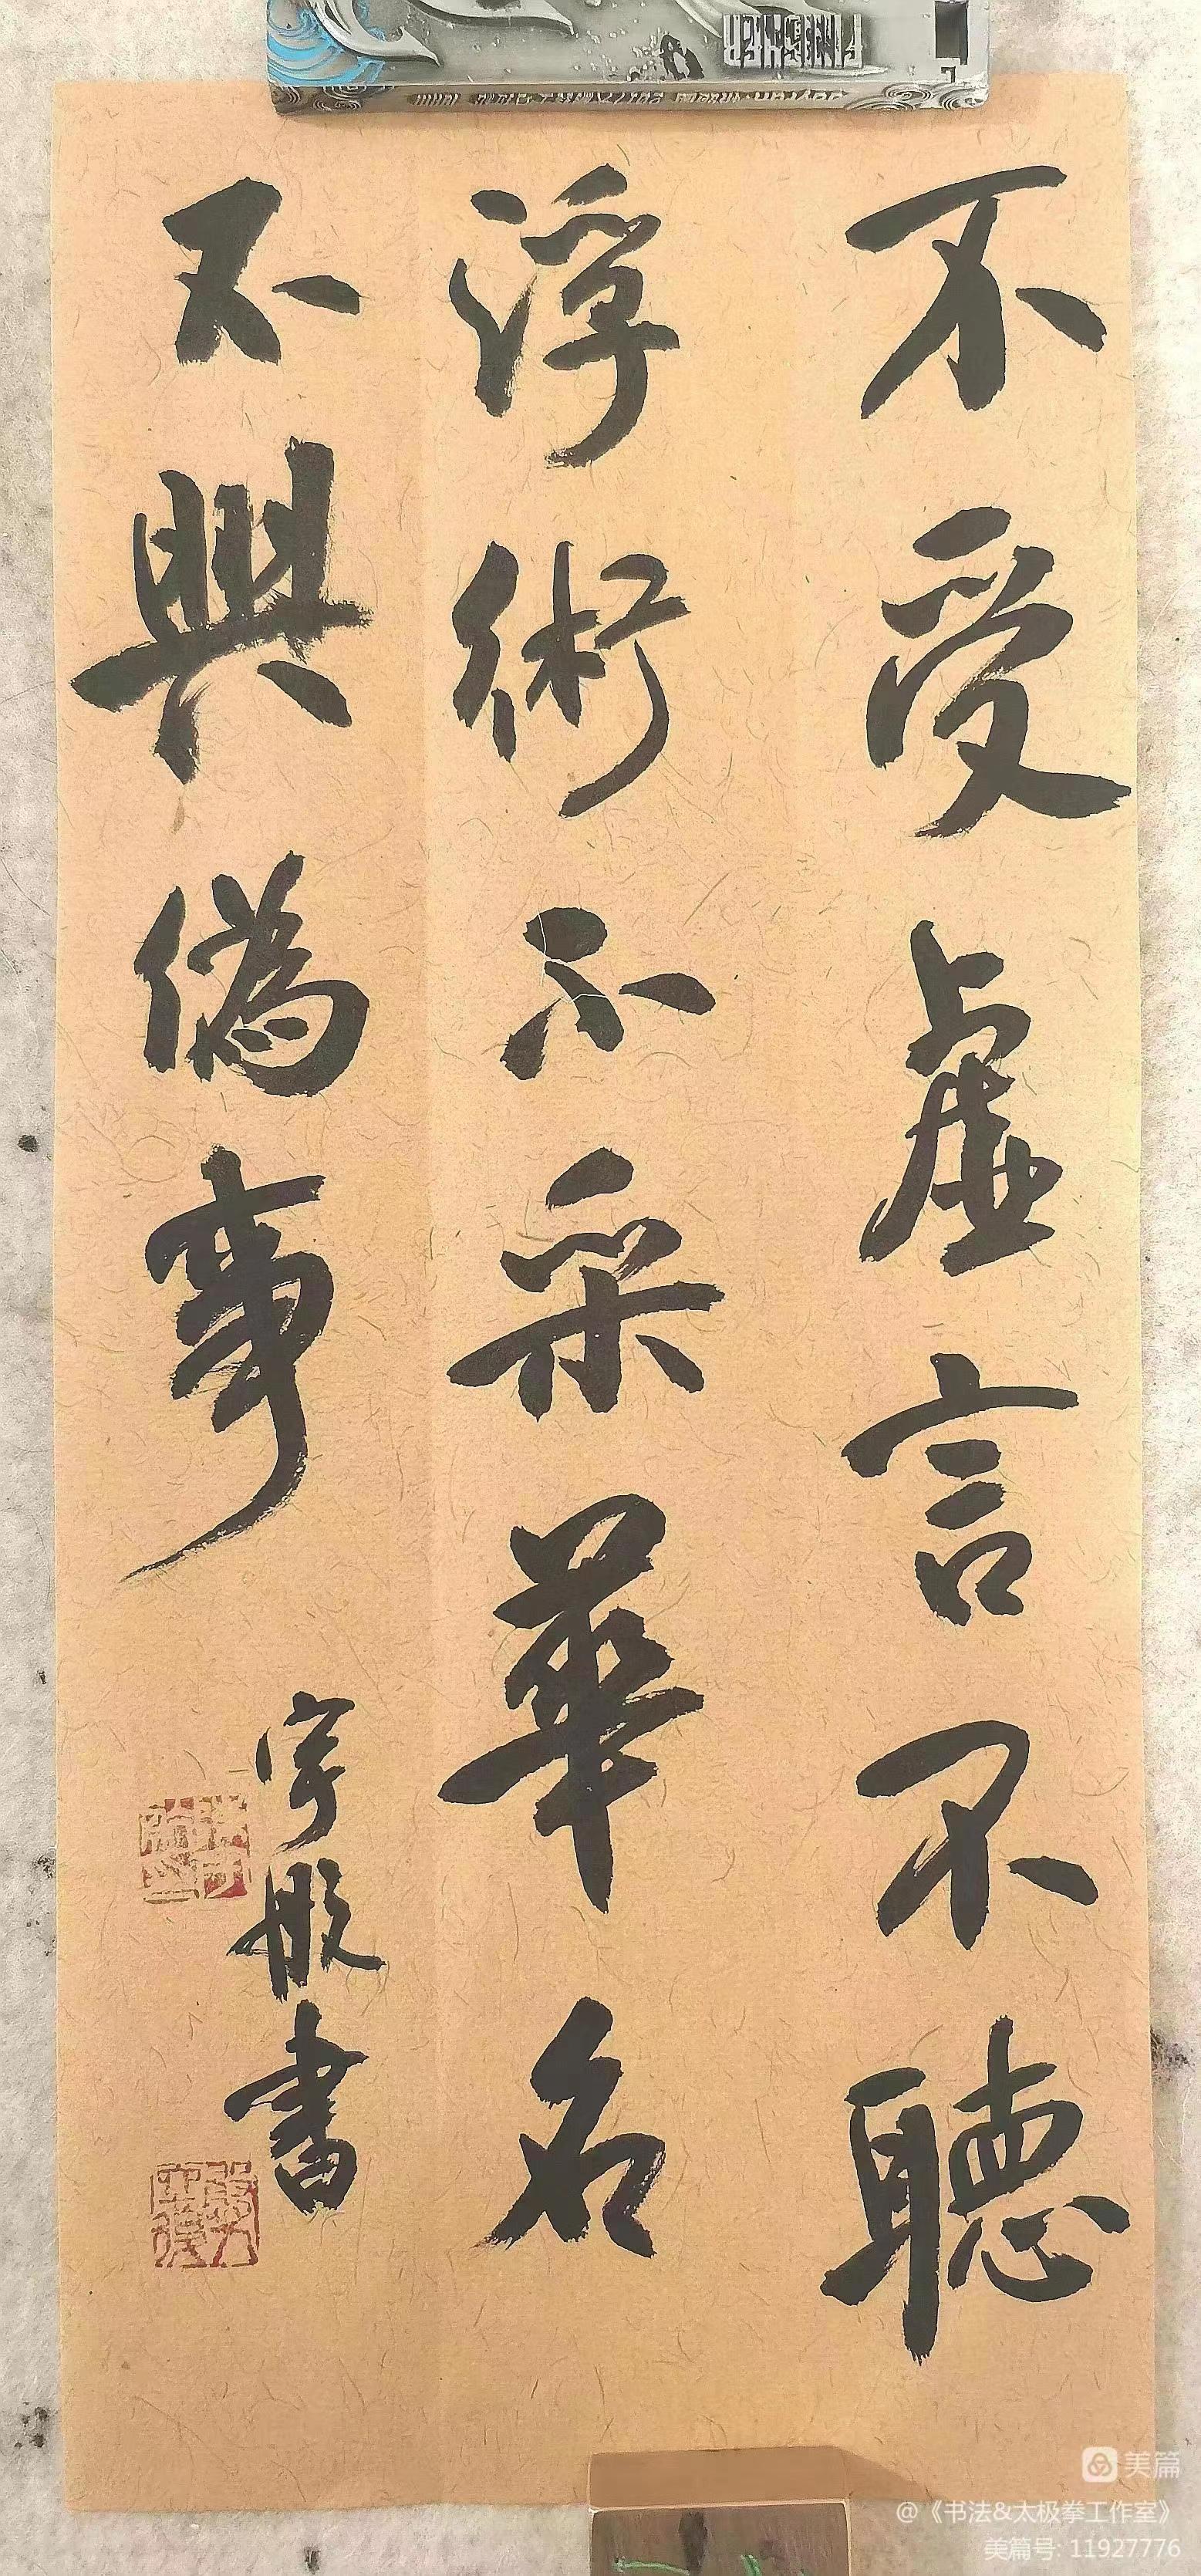 不受虛言不聽
浮術不采華名
不興偽事
宇彤書
美篇
@《书法&太极拳工作室》
美篇号: 11927776